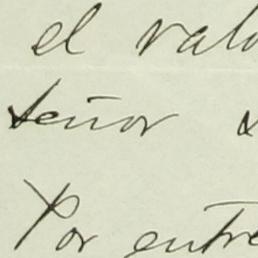 el valo
señor
Por entre